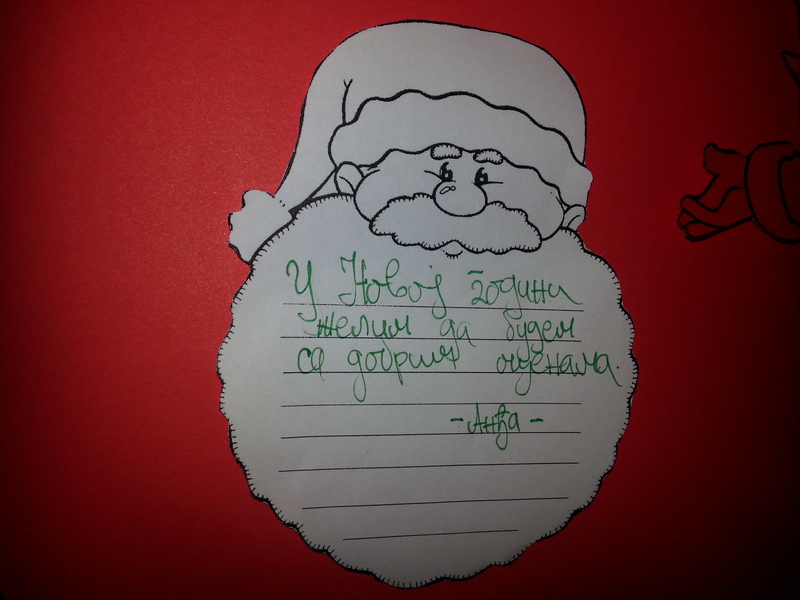 У Новој години
желим да будем
са добрим оценама.
-Анђа-